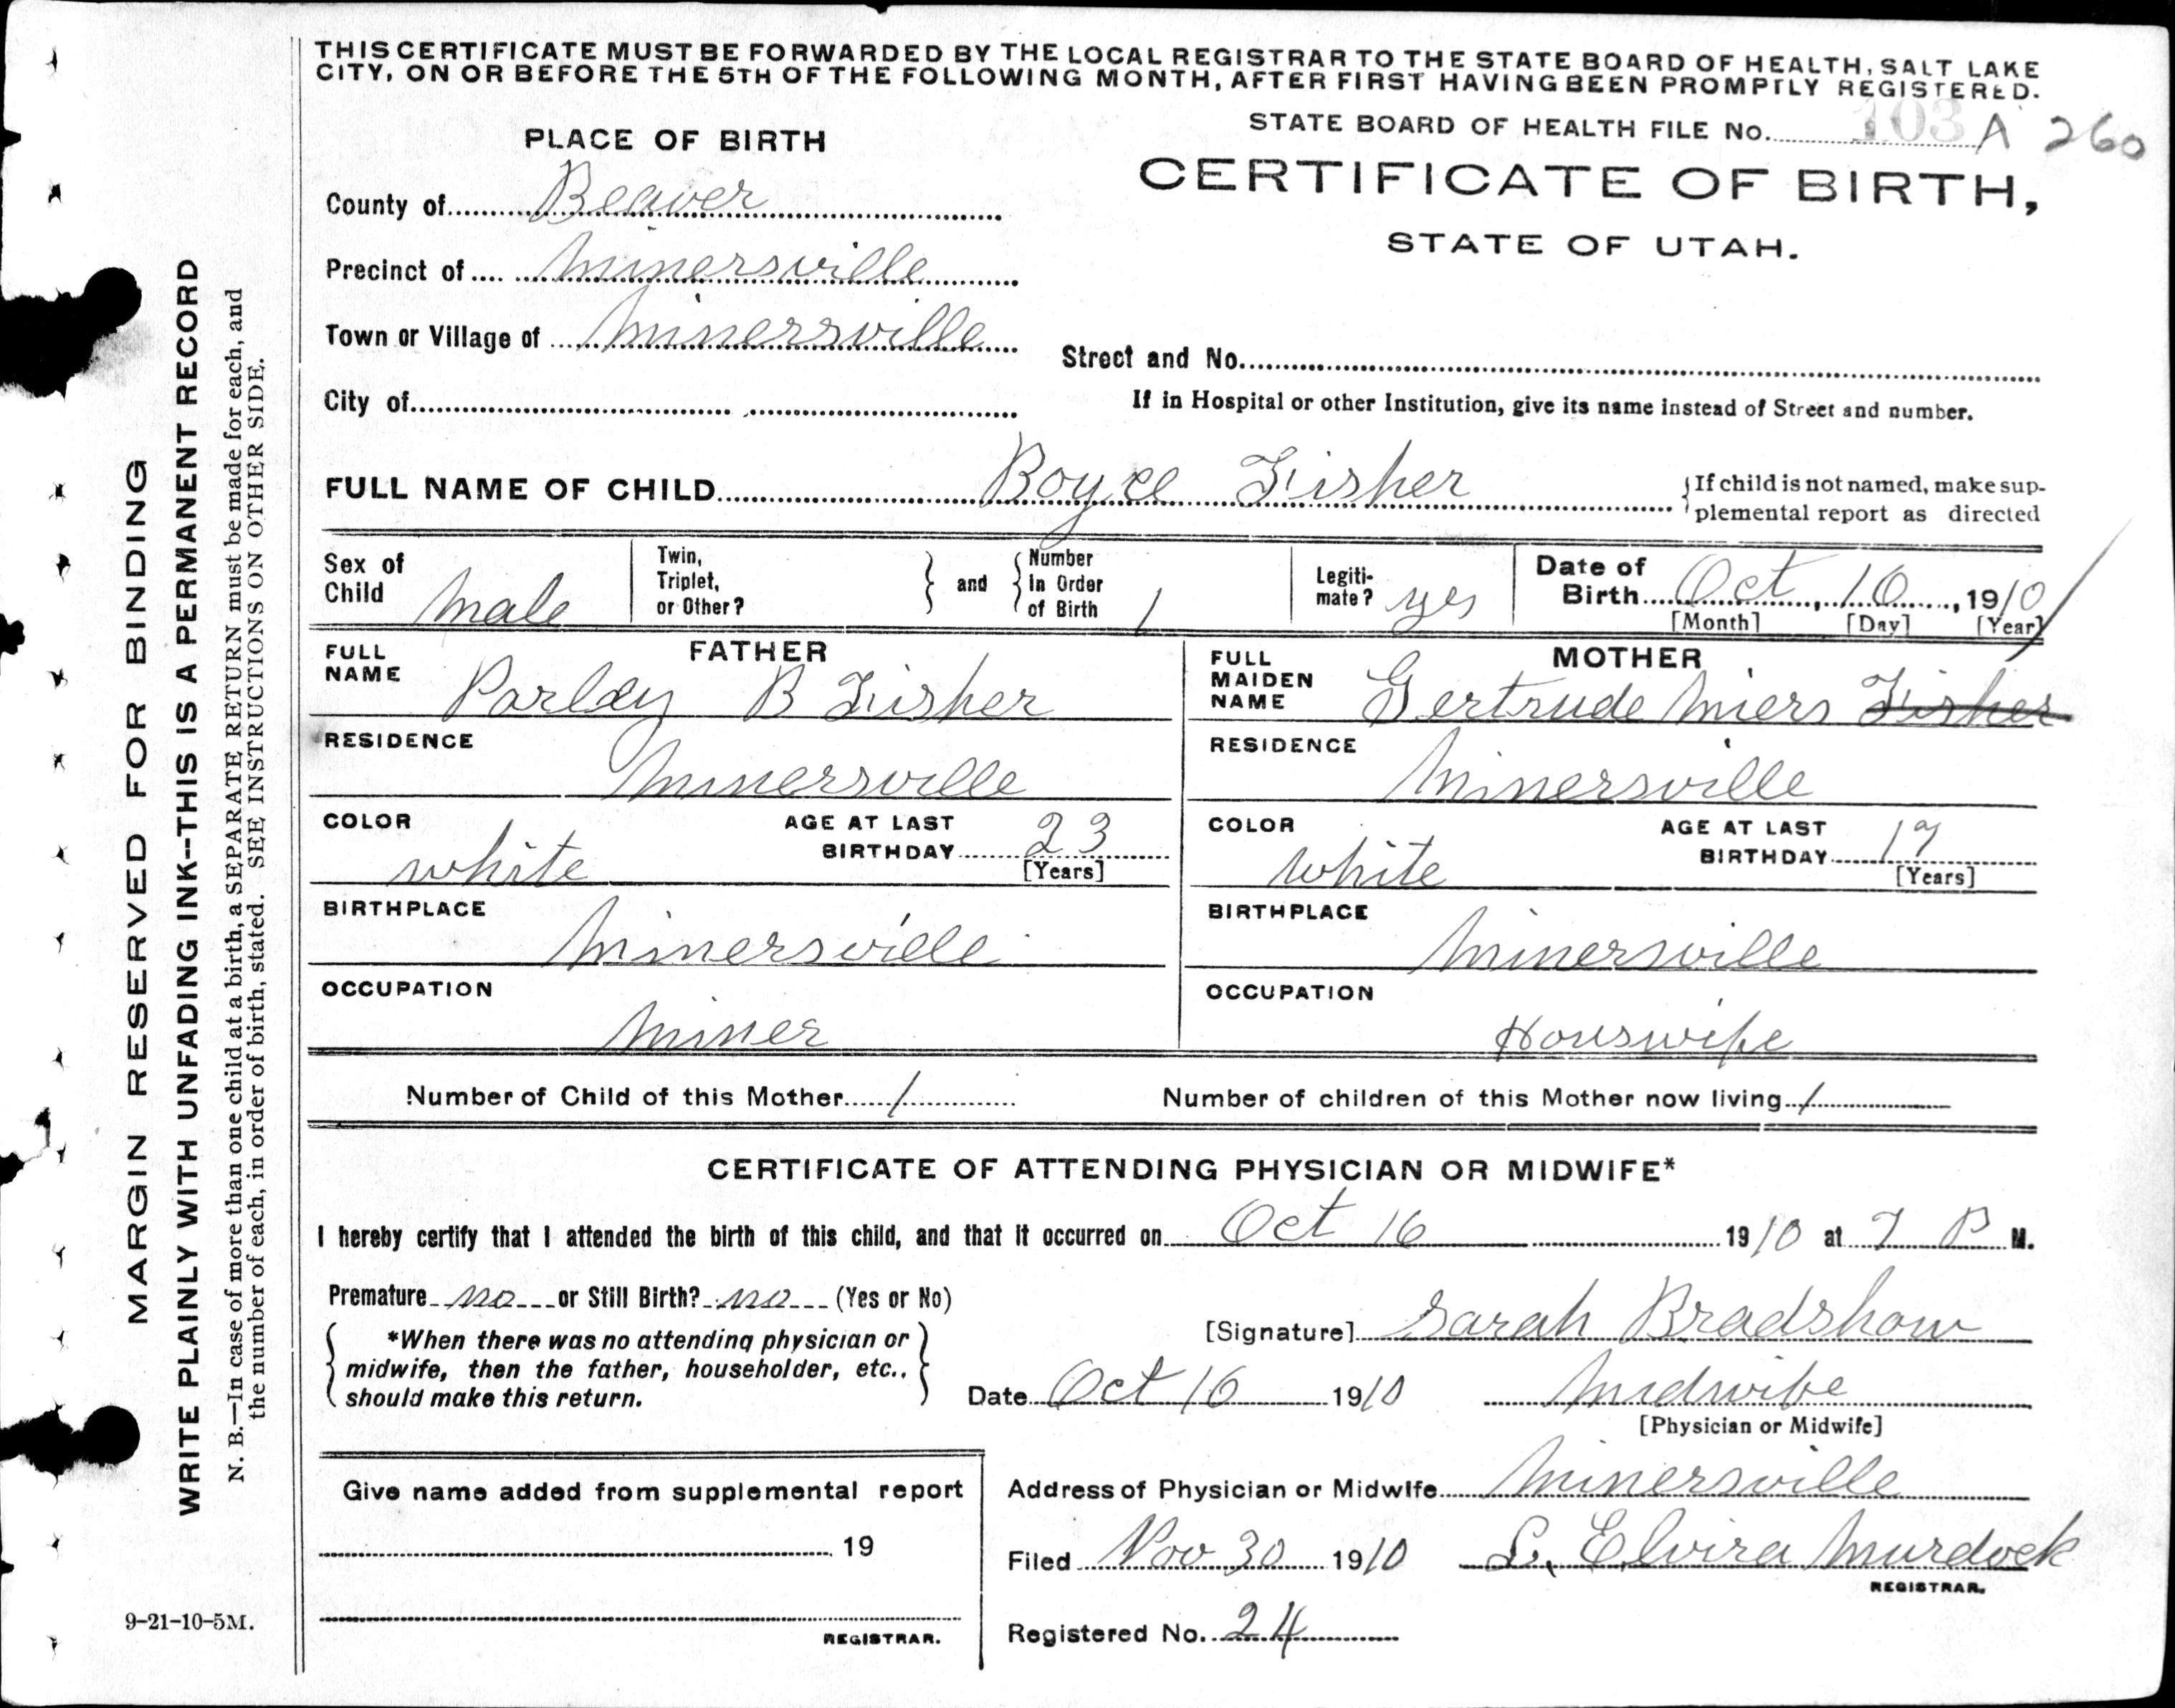 THIS CERTIFICATE MUST BE FORWARDED BY THE LOCAL REGISTRAR TO THE STATE BOARD OF HEALTH, SALT LAKE
CITY, ON OR BEFORE THE 5TH OF THE FOLLOWING MONTH, AFTER FIRST HAVING BEEN PROMPTLY REGISTERED.
STATE BOARD OF HEALTH FILE No. 103 A 260
PLACE OF BIRTH
CERTIFICATE OF BIRTH,
STATE OF UTAH.
County of Beaver
Precinct of Minersville
Town or Village of Minersville
Street and No.
City of
If in Hospital or other Institution, give its name instead of Street and number.
FULL NAME OF CHILD Boyce Fisher
{If child is not named, make sup-
plemental report as directed
Sex of Child Male
Twin, Triplet, or Other? } and { Number In Order of Birth 1
Legiti-mate? yes
Date of Birth Oct, 16, 1910
[Month] [Day] [Year]
FATHER
FULL NAME Parley B Fisher
RESIDENCE Minersville
COLOR white AGE AT LAST BIRTHDAY 23 [Years]
BIRTHPLACE Minersville
OCCUPATION Miner
MOTHER
FULL MAIDEN NAME Gertrude Miers Fisher
RESIDENCE Minersville
COLOR White AGE AT LAST BIRTHDAY 17 [Years]
BIRTHPLACE Minersville
OCCUPATION Houswife
Number of Child of this Mother 1 Number of children of this Mother now living 1
CERTIFICATE OF ATTENDING PHYSICIAN OR MIDWIFE*
I hereby certify that I attended the birth of this child, and that it occurred on Oct 16 1910 at 7 P M.
Premature no or Still Birth? no (Yes or No)
{ *When there was no attending physician or
midwife, then the father, householder, etc.,
should make this return. }
[Signature] Sarah Bradshaw
Date Oct 16 1910 Midwife
[Physician or Midwife]
Give name added from supplemental report
19
REGISTRAR.
Address of Physician or Midwife Minersville
Filed Nov 30 1910 L. Elvira Murdock
REGISTRAR.
Registered No. 24
MARGIN RESERVED FOR BINDING
WRITE PLAINLY WITH UNFADING INK--THIS IS A PERMANENT RECORD
N. B.—In case of more than one child at a birth, a SEPARATE RETURN must be made for each, and
the number of each, in order of birth, stated. SEE INSTRUCTIONS ON OTHER SIDE.
9-21-10-5M.